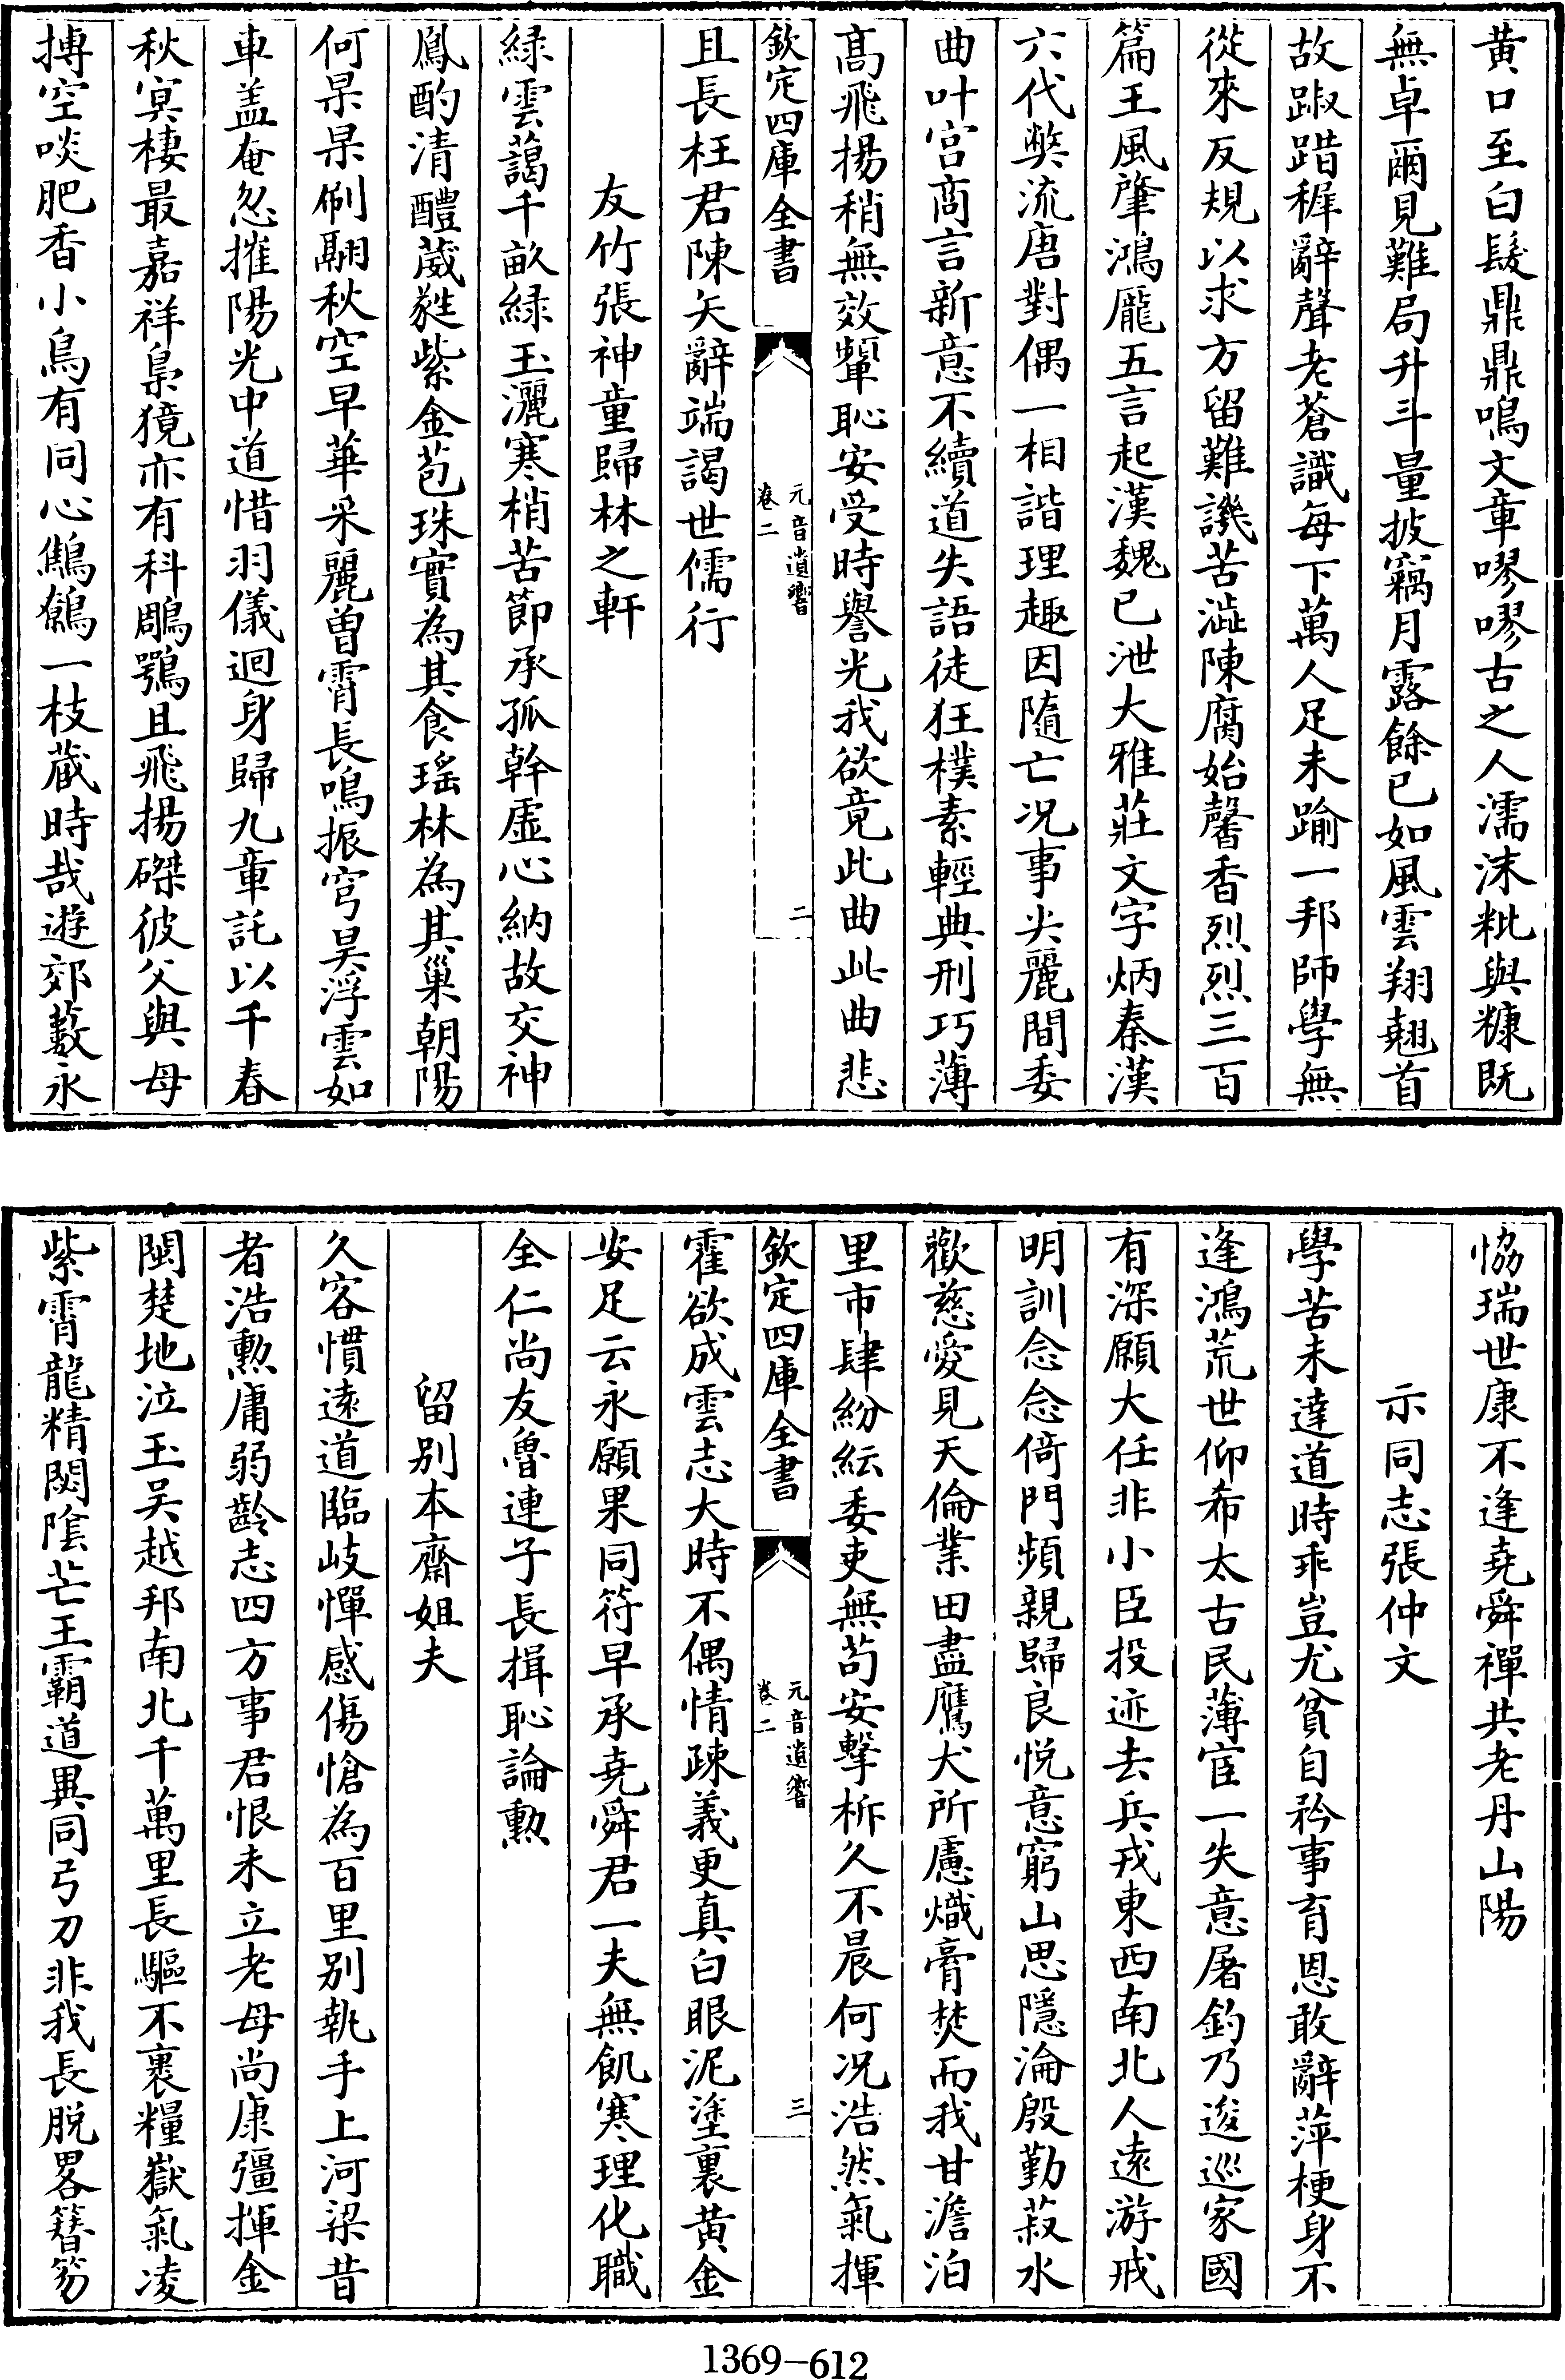 黄口至白髮鼎鼎鳴文章嘐嘐古之人濡沫粃與糠既
無卓爾見難局升斗量披竊月露餘已如風雲翔翹首
故踧踖穉辭聲老蒼識每下萬人足未踰一邦師學無
從來反規以求方留難譏苦澁陳腐始馨香烈烈三百
篇王風肇鴻厖五言起漢魏已泄大雅莊文字炳秦漢
六代弊流唐對偶一相諧理趣因隨亡况事尖麗間委
曲叶宫商言新意不續道失語徒狂樸素輕典刑巧薄
髙飛揚稍無效顰恥安受時譽光我欲竟此曲此曲悲
欽定四庫全書
元音遺響
卷二
二
且長枉君陳矢辭端謁世儒行
友竹張神童歸林之軒
緑雲藹千畝緑玉灑寒梢苦節承孤幹虚心納故交神
鳳酌清醴葳蕤紫金苞珠實為其食瑤林為其巢朝陽
何杲杲刷翮秋空早華采麗曾霄長鳴振穹昊浮雲如
車盖奄忽摧陽光中道惜羽儀迴身歸九章託以千春
秋寘棲最嘉祥梟獍亦有科鵰鶚且飛揚磔彼父與母
搏空啖肥香小鳥有同心鷦鷯一枝蔵時哉遊郊藪永
恊瑞世康不逢堯舜禪共老丹山陽
示同志張仲文
學苦未達道時乖豈尤貧自矜事育恩敢辭萍梗身不
逢鴻荒世仰希太古民薄宦一失意屠釣乃逡巡家國
有深願大任非小臣投迹去兵戎東西南北人逺游戒
明訓念念倚門頻親歸良悦意窮山思隱淪殷勤菽水
歡慈愛見天倫業田盡鷹犬所慮熾膏焚而我甘澹泊
里市肆紛紜委吏無苟安擊柝久不晨何况浩然氣揮
欽定四庫全書
元音遺響
卷二
三
霍欲成雲志大時不偶情疎義更真白眼泥塗裏黄金
安足云永願果同符早承堯舜君一夫無飢寒理化職
全仁尚友魯連子長揖恥論勲
留别本齋姐夫
久客慣逺道臨岐憚感傷愴為百里别執手上河梁昔
者浩勲庸弱齡志四方事君恨未立老母尚康彊揮金
閩楚地泣玉吴越邦南北千萬里長驅不裹糧嶽氣凌
紫霄龍精閟陰芒王霸道異同弓刀非我長脱畧簪笏
1369-612